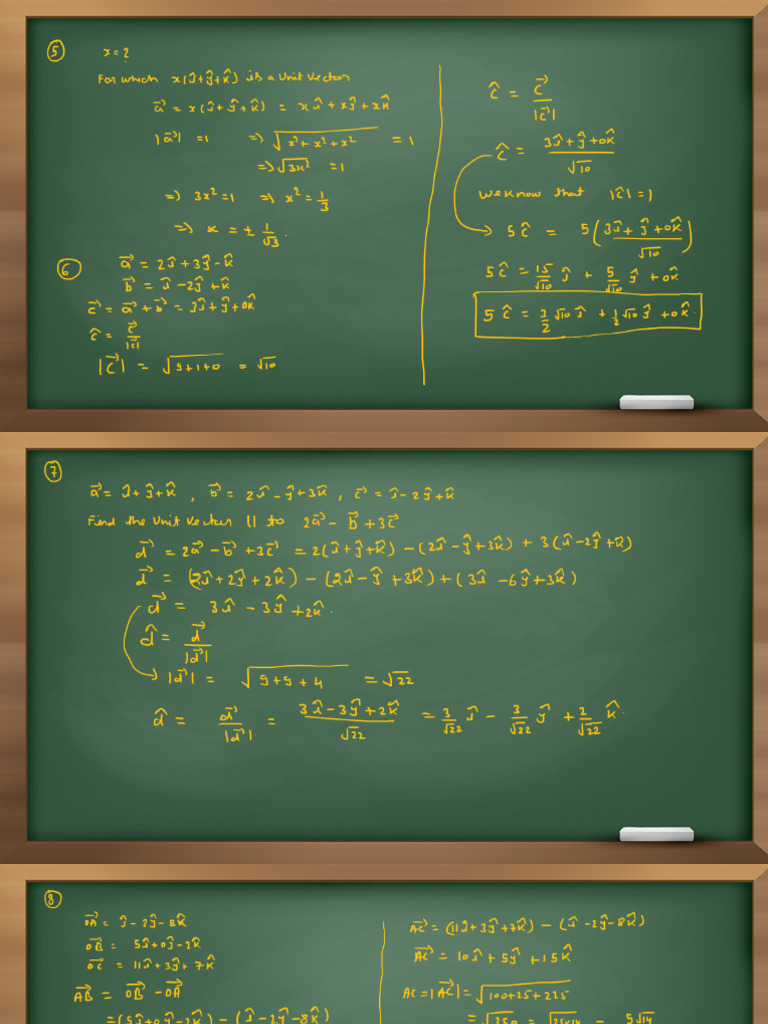 ⑤ x = ?
For which x(î+ĵ+k̂) is a unit vector
a⃗ = x(î+ĵ+k̂) = xî+xĵ+xk̂
|a⃗| = 1 ⇒ √(x²+x²+x²) = 1
⇒ √(3x²) = 1
⇒ 3x² = 1 ⇒ x² = 1/3
⇒ x = ± 1/√3.
⑥ a⃗ = 2î+3ĵ-k̂
b⃗ = î-2ĵ+k̂
c⃗ = a⃗+b⃗ = 3î+ĵ+0k̂
ĉ = c⃗/|c⃗|
|c⃗| = √(9+1+0) = √10
ĉ = c⃗/|c⃗|
ĉ = (3î+ĵ+0k̂)/√10
We know that |ĉ| = 1
5ĉ = 5((3î+ĵ+0k̂)/√10)
5ĉ = 15/√10 î + 5/√10 ĵ + 0k̂
5ĉ = 3/2 √10 î + 1/2 √10 ĵ + 0k̂.
⑦
a⃗ = î+ĵ+k̂, b⃗ = 2î-ĵ+3k̂, c⃗ = î-2ĵ+k̂
Find the unit vector || to 2a⃗-b⃗+3c⃗
d⃗ = 2a⃗-b⃗+3c⃗ = 2(î+ĵ+k̂)-(2î-ĵ+3k̂)+3(î-2ĵ+k̂)
d⃗ = (2î+2ĵ+2k̂)-(2î-ĵ+3k̂)+(3î-6ĵ+3k̂)
d⃗ = 3î-3ĵ+2k̂.
d̂ = d⃗/|d⃗|
|d⃗| = √(9+9+4) = √22
d̂ = d⃗/|d⃗| = (3î-3ĵ+2k̂)/√22 = 3/√22 î - 3/√22 ĵ + 2/√22 k̂.
⑧
OA⃗ = î-2ĵ-8k̂
OB⃗ = 5î+0ĵ-2k̂
OC⃗ = 11î+3ĵ+7k̂
AB⃗ = OB⃗-OA⃗
=(5î+0ĵ-2k̂)-(î-2ĵ-8k̂)
AC⃗ = (11î+3ĵ+7k̂)-(î-2ĵ-8k̂)
AC⃗ = 10î+5ĵ+15k̂
AC = |AC⃗| = √(100+25+225)
= √350 = √(25×14) = 5√14